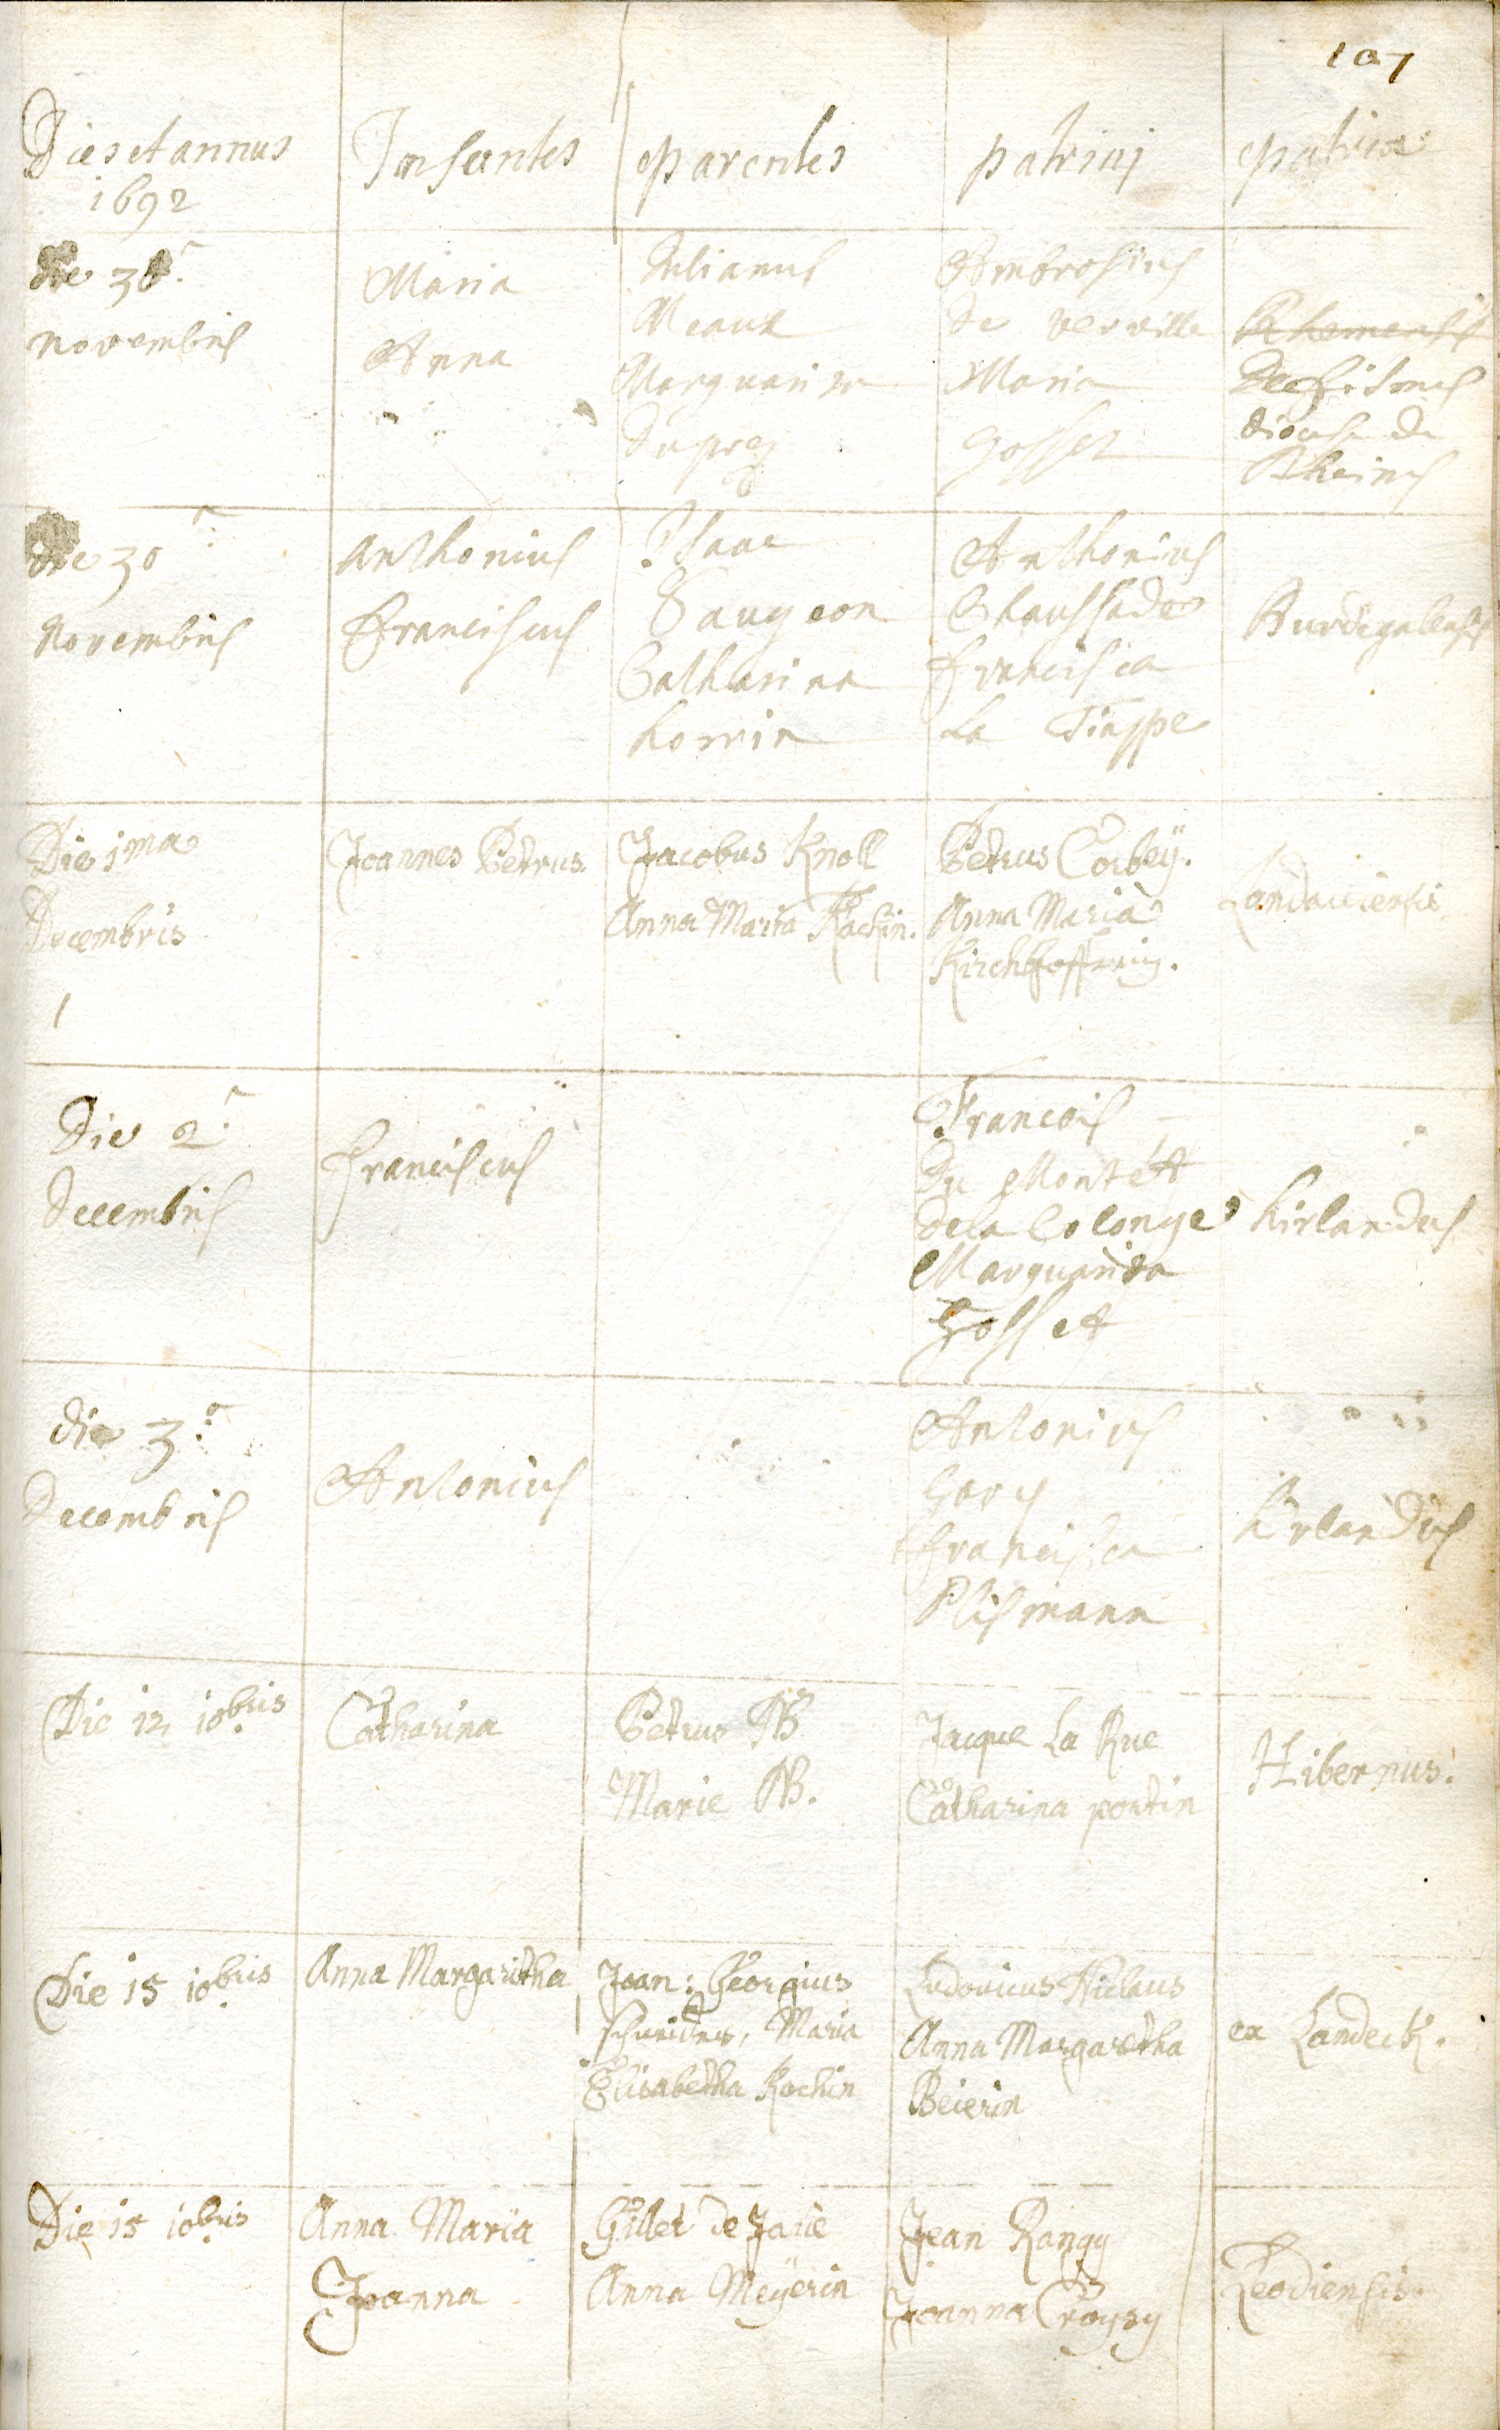 107
Dies et annus
1692
Infantes
parentes
patrinj
patria
Die 30
novembris
Maria
Anna
Julianus
Meaux
Marguarita
Duprez
Ambrosius
de verville
Maria
Gosset
Rhemensis
diocese de
Rheims
die 30
Novembris
Anthonius
Franciscus
Isaac
Saugeon
Catharina
Lorrin
Anthonius
Chaussade
Francisca
La Frappe
Burdigalensis
Die 1ma
Decembris
1
Joannes Petrus.
Jacobus Knoll
Anna Maria Kochin.
Petrus Corbeÿ.
Anna Maria
Kirchhoffrin.
Landaviensis
Die 2
Decembris
Franciscus
Francois
Du Montét
de la Colonge
Marguarita
Gosset
Kirlandus
die 3
Decembris
Antonius
Antonius
Gary
Francisca
Plismann
Kirlandus
Die 12 10bris
Catharina
Petrus N
Marie N.
Jacque La Rue
Catharina pontin
Hibernus.
Die 15 10bris
Anna Margaritha
Joan: Georgius
schneider, Maria
Elisabetha Kochin
Ludovicus Niclaus
Anna Margaretha
Beierin
ex Landeck.
Die 15 10bris
Anna Maria
Joanna
Gillet de
Anna Meÿerin
Jean Rangy
Joanna Croysy
Leodiensis.